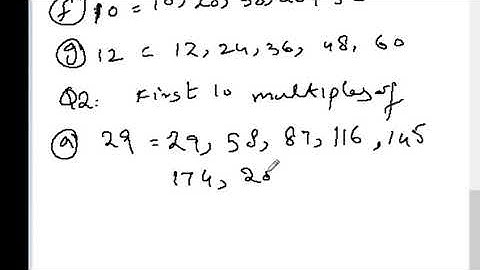 (f) 10 = 10, 20, 30,
(g) 12 = 12, 24, 36, 48, 60
Q2: First 10 multiples of
(a) 29 = 29, 58, 87, 116, 145
174, 20